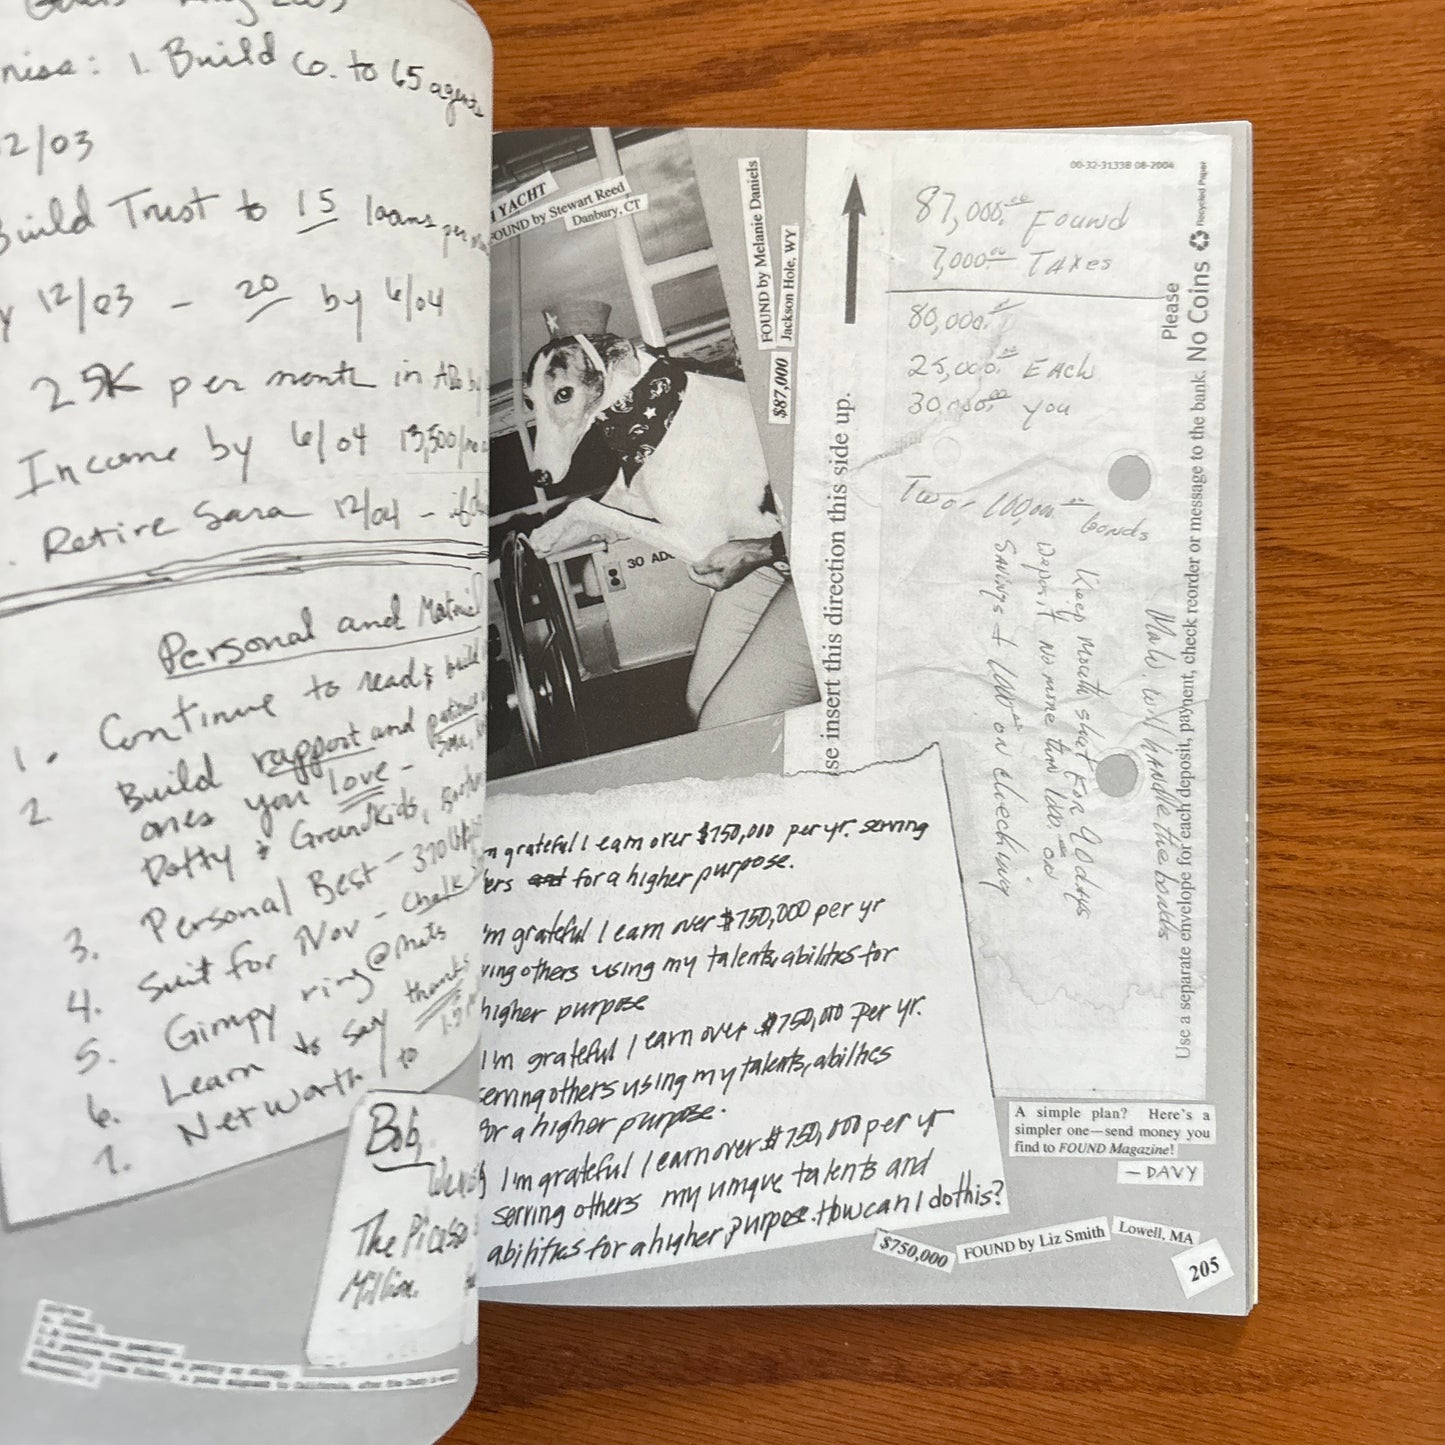 Goals
: 1. Build Co. to 65 agents
12/03
Build Trust to 15 loans per
12/03 - 20 by 6/04
25K per month in
Income by 6/04 13,500/mo
Retire Sara 12/04 - if
Personal and
1. Continue to read & build
2. Build rapport and
ones you love -
Dotty & Grandkids,
3. Personal Best -
4. Suit for Nov - Chalk
5. Gimpy ring @ Mats
6. Learn to say thanks
7. Net Worth to
Bob,
The Picasso
Million.
YACHT
FOUND by Stewart Reed
Danbury, CT
30 AD
FOUND by Melanie Daniels
Jackson Hole, WY
$87,000
se insert this direction this side up.
00-32-3133B 08-2004
Recycled Paper
87,000.00 Found
7,000.00 TAxes
80,000.00
25,000.00 EAch
30,000.00 you
Two - 100,000.00 bonds
Keep mouth shut For 90 days
Deposit no more than 100.00 on
SAvings + 100.00 on checking
will handle the bonds
Please
No Coins
Use a separate envelope for each deposit, payment, check reorder or message to the bank.
m grateful I earn over $750,000 per yr. serving
ers and for a higher purpose.
'm grateful I earn over $750,000 per yr
ving others using my talents, abilities for
higher purpose
I'm grateful I earn over $750,000 per yr.
serving others using my talents, abilities
for a higher purpose.
I'm grateful I earn over $750,000 per yr
serving others my unique talents and
abilities for a higher purpose. How can I do this?
A simple plan? Here's a
simpler one—send money you
find to FOUND Magazine!
—DAVY
$750,000
FOUND by Liz Smith
Lowell, MA
205